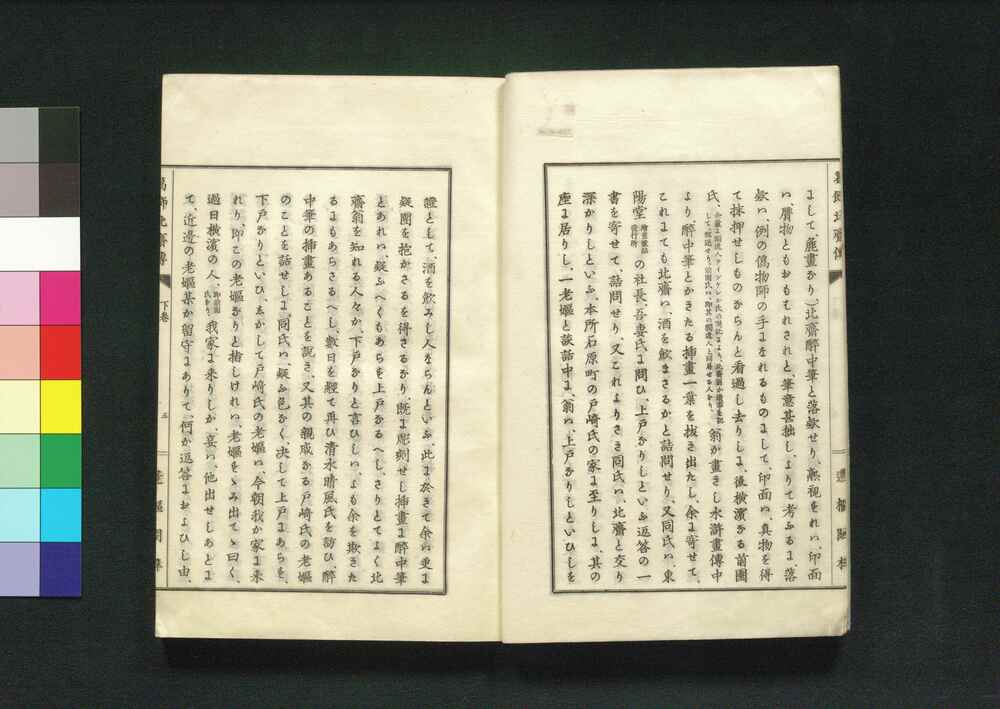 よして、麁畫かり)北齋醉中筆と落欵せり、熟視をれハ、印面
ハ、贋物ともおもはれされと、筆意甚拙し、よりて考ふるよ、落
欵ハ、例の僞物師の手よなれるものよして、印面ハ、真物を得
て抹抑せしものならんと看過し去りしよ、後横濱なる前園
氏、翁か畫きし水滸畫傳中
より醉中筆とかきたる挿畫一葉を抜き出たし、余よ寄せて、
これよても北齋ハ、酒を飲まさるかと詰問せり、又同氏ハ、東
陽堂繪畫叢誌發行所の社長、吾妻氏よ問ひ、上戸かりしといふ返答の一
書を寄せて、詰問せり、又これよりさき同氏ハ、北齋と交り
深かりしといふ、本所石原町の戸崎氏の家よ至りしよ、其の
座よ居りし、一老嫗と談話中よ、翁ハ、上戸かりしといひしを
證として、酒を飲みし人ならんといふ、此よ於きて余ハ更よ
疑團を抱かさるを得さるかり、既よ彫刻せし挿畫よ醉中筆
とあれハ、疑ふへくもあらぬ上戸なるへし、さりとてよく北
齋翁を知れる人々か、下戸かりと言ひしハ、よも余を欺きた
るよもあらさるへし、數日を經て再ひ清水晴風氏を訪ひ、醉
中筆の挿畫あることを説き、又其の親戚なる戸崎氏の老嫗
のことを話せしよ、同氏ハ、疑ふ色かく、決して上戸よあらを、
下戸かりといひ、しかして戸崎氏の老嫗ハ、今朝我か家よ来
れり、卽この老嫗かりと指しけれハ、老嫗をゝみ出てゝ曰く、
過日横濱の人、卽前園氏かり我家よ来りしか、妾ハ、他出せしあとよ
て、近邊の老嫗某か留守よありて、何か返答よおよひし由、
下卷
五